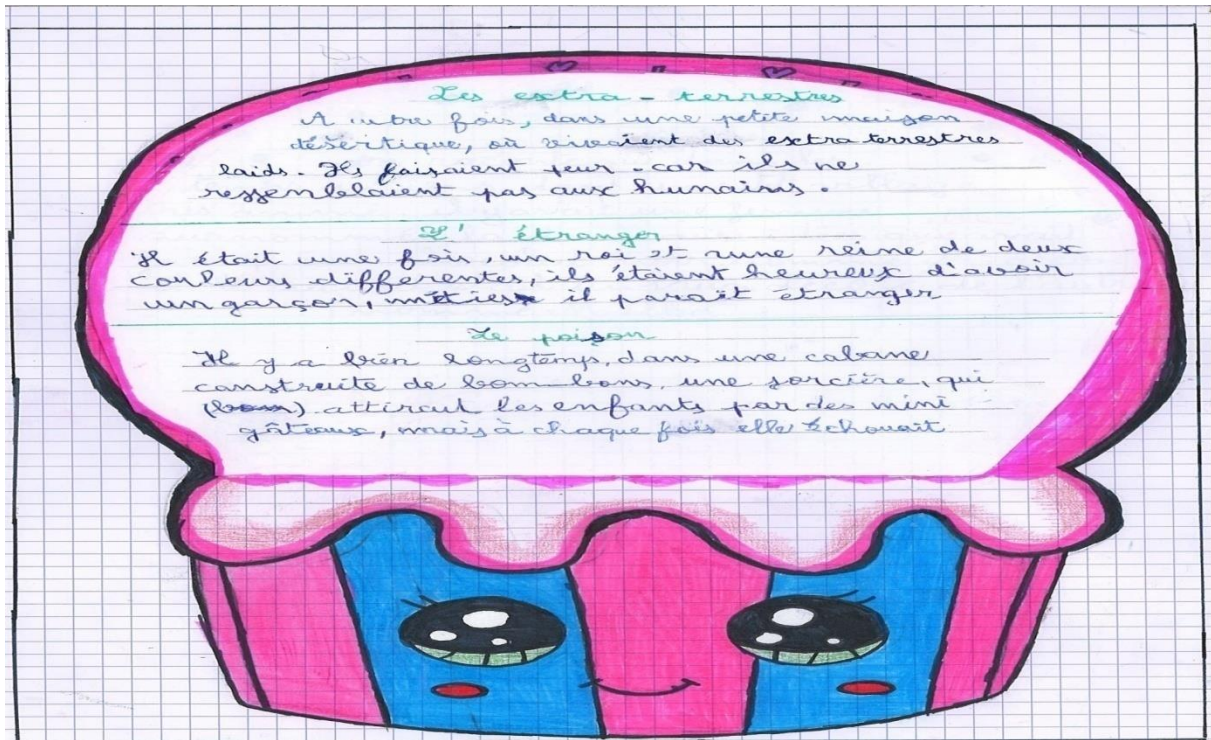 Les extra-terrestres
A utre fois, dans une petite maison
désertique, où vivaient des extra terrestres
laids. Ils faisaient peur. car ils ne
ressemblaient pas aux humains.
L'étranger
Il était une fois, un roi et une reine de deux
couleurs différentes, ils étaient heureux d'avoir
un garçon, métiss il paraît étranger
Le poison
Il y a bien longtemps, dans une cabane
construite de bom bons, une sorcière, qui
attirait les enfants par des mini
gâteaux, mais à chaque fois elle échouait